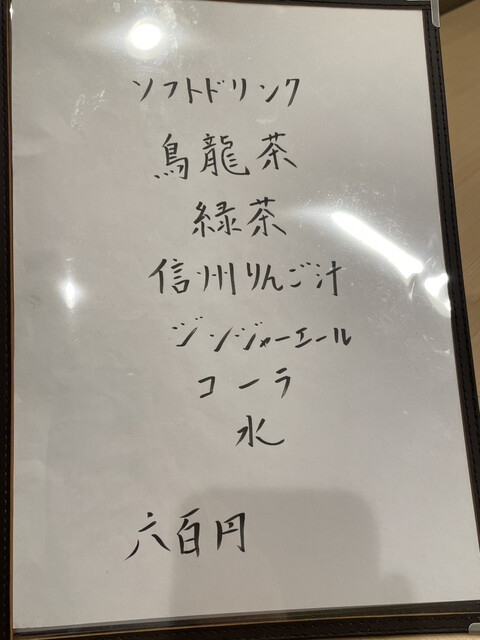 ソフトドリンク
烏龍茶
緑茶
信州りんご汁
ジンジャーエール
コーラ
水
六百円